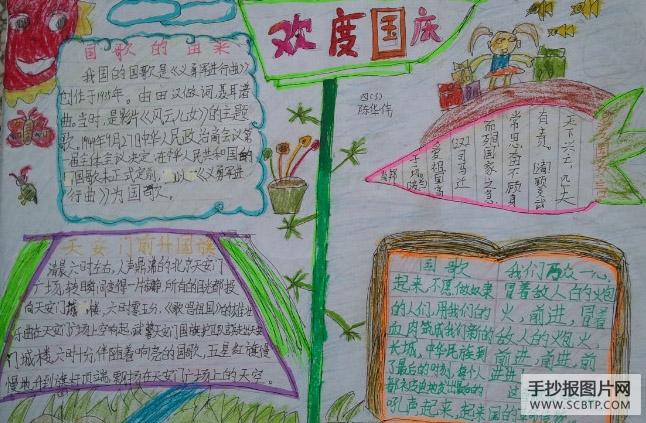 欢度国庆
国歌的由来
我国的国歌是《义勇军进行曲》
创作于1935年。由田汉做词,聂耳谱
曲。当时,是影片《风云儿女》的主题
歌。1949年9月27日中华人民政治商会议第
一届全体会议决定,在中华人民共和国的
国歌未正式定制前,以《义勇军进
行曲》为国歌。
四(5)
陈华伟
天下兴亡,匹夫
有责。
常思奋不顾身
而殉国家之急
司马迁
天安门前升国旗
清晨六时左右,人声鼎沸的北京天安门
广场,转瞬间变得一片静静,所有的目光都投
向天安门城楼,六时零五分,《歌唱祖国》的雄壮
乐曲在天安门广场上空响起,武警天安门国旗护卫队
门城楼,六时十分伴随着响亮的国歌,五星红旗慢
慢地升到旗杆顶端,飘扬在天安门广场上的天空。
国歌
起来,不愿做奴隶
的人们,用我们的
血肉筑成我们新的
长城,中华民族到
了最后的时刻,每个人
吼声起来,起来
我们万众一心
冒着敌人的炮
火,前进,冒着
敌人的炮火,
前进,前进,前
进
手抄报图片网
WWW.SCBTP.COM